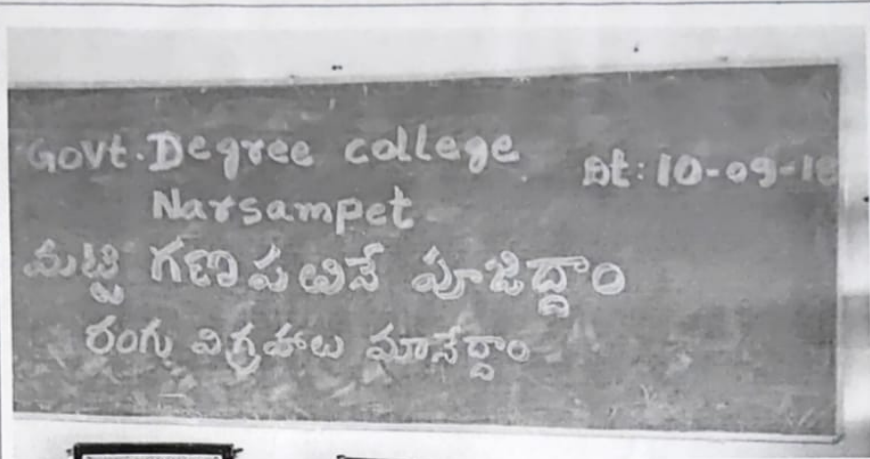 Govt. Degree college
Dt: 10-09-18
Narsampet
మట్టి గణపతినే పూజిద్దాం
రంగు విగ్రహాలు మానేద్దాం